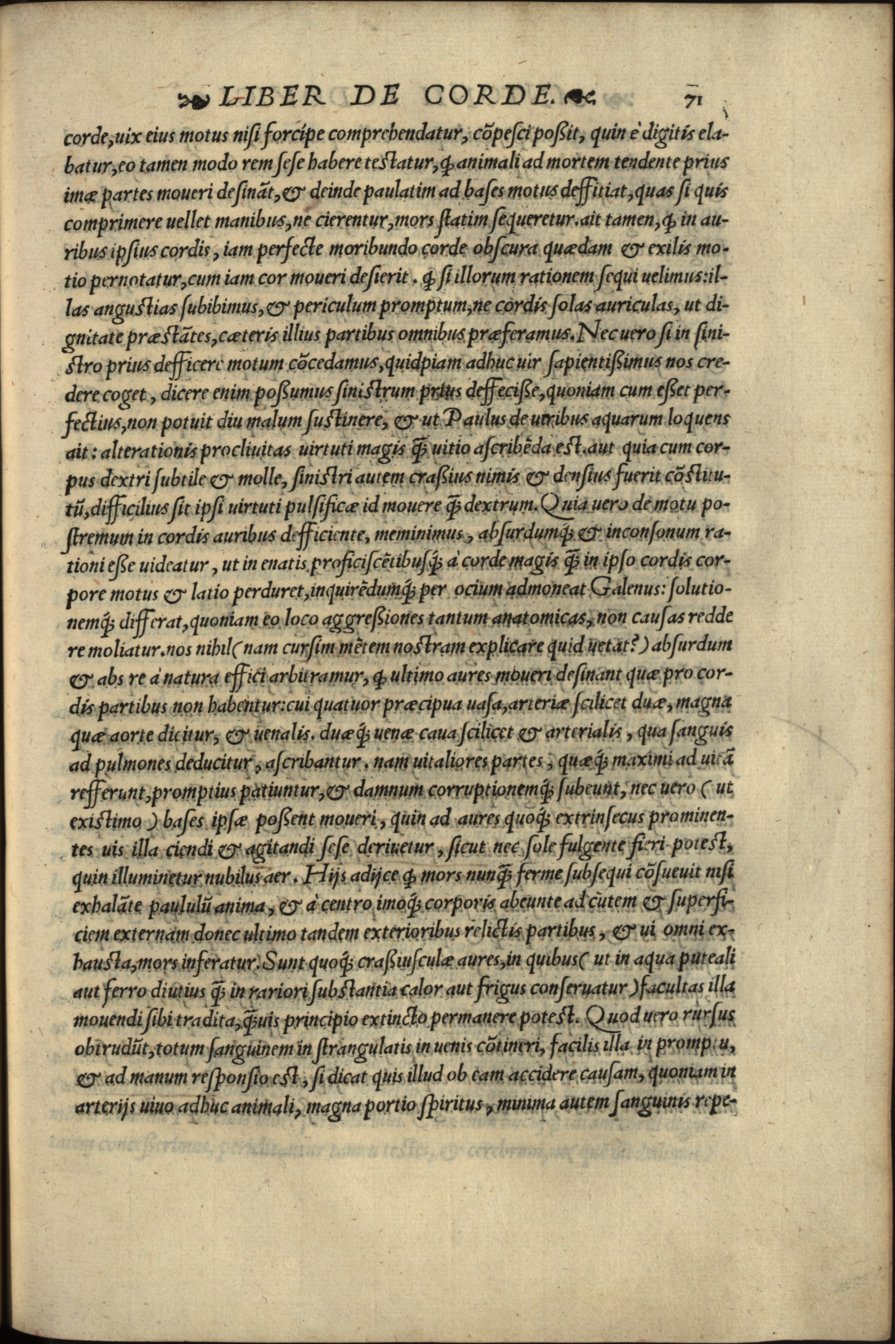 LIBER DE CORDE. 71
corde,uix eius motus nisi forcipe comprehendatur, cõpesci poßit, quin è digitis ela-
batur,eo tamen modo rem sese habere testatur,q̃ animali ad mortem tendente prius
imæ partes moueri desinãt,& deinde paulatim ad bases motus deffitiat,quas si quis
comprimere uellet manibus,ne cierentur,mors statim sequeretur.ait tamen,q̃ in au-
ribus ipsius cordis, iam perfecte moribundo corde obscura quædam & exilis mo-
tio pernotatur,cum iam cor moueri desierit. q̃ si illorum rationem sequi uelimus:il-
las angustias subibimus,& periculum promptum,ne cordis solas auriculas, ut di-
gnitate præstãtes,cæteris illius partibus omnibus præferamus. Nec uero si in sini-
stro prius defficere motum cõcedamus,quidpiam adhuc uir sapientißimus nos cre-
dere coget, dicere enim poßumus sinistrum prius deffeciße,quoniam cum eßet per-
fectius,non potuit diu malum sustinere, & ut Paulus de utribus aquarum loquens
ait: alterationis procliuitas uirtuti magis q̃ uitio ascribẽda est.aut quia cum cor-
pus dextri subtile & molle, sinistri autem craßius nimis & densius fuerit cõstitu-
tũ,difficilius sit ipsi uirtuti pulsificæ id mouere q̃ dextrum. Quia uero de motu po-
stremum in cordis auribus defficiente, meminimus, absurdumq́; & inconsonum ra-
tioni eße uideatur, ut in enatis proficiscẽtibusq́; à corde magis q̃ in ipso cordis cor-
pore motus & latio perduret,inquirẽdumq́; per ocium admoneat Galenus: solutio-
nemq́; differat,quoniam eo loco aggreßiones tantum anatomicas, non causas redde
re moliatur.nos nihil(nam cursim mẽtem nostram explicare quid uetat?) absurdum
& abs re à natura effici arbitramur, q̃ ultimo aures moueri desinant quæ pro cor-
dis partibus non habentur:cui quatuor præcipua uasa,arteriæ scilicet duæ, magna
quæ aorte dicitur, & uenalis. duæq́; uenæ caua scilicet & arterialis, qua sanguis
ad pulmones deducitur, ascribantur. nam uitaliores partes, quæq́; maximi ad uitã
refferunt,promptius patiuntur,& damnum corruptionemq́; subeunt, nec uero (ut
existimo) bases ipsæ poßent moueri, quin ad aures quoq́; extrinsecus prominen-
tes uis illa ciendi & agitandi sese deriuetur, sicut nec sole fulgente fieri potest,
quin illuminetur nubilus aer. Hijs adijce q̃ mors nunq̃ ferme subsequi cõsueuit nisi
exhalãte paululũ anima, & à centro imoq́; corporis abeunte ad cutem & superfi-
ciem externam donec ultimo tandem exterioribus relictis partibus, & ui omni ex-
hausta,mors inferatur. Sunt quoq́; craßiusculæ aures,in quibus( ut in aqua puteali
aut ferro diutius q̃ in rariori substantia calor aut frigus conseruatur)facultas illa
mouendi sibi tradita,q̃uis principio extincto permanere potest. Quod uero rursus
obtrudũt,totum sanguinem in strangulatis in uenis cõtineri, facilis illa in promptu,
& ad manum responsio est, si dicat quis illud ob eam accidere causam, quoniam in
arterijs uiuo adhuc animali, magna portio spiritus, minima autem sanguinis repe-